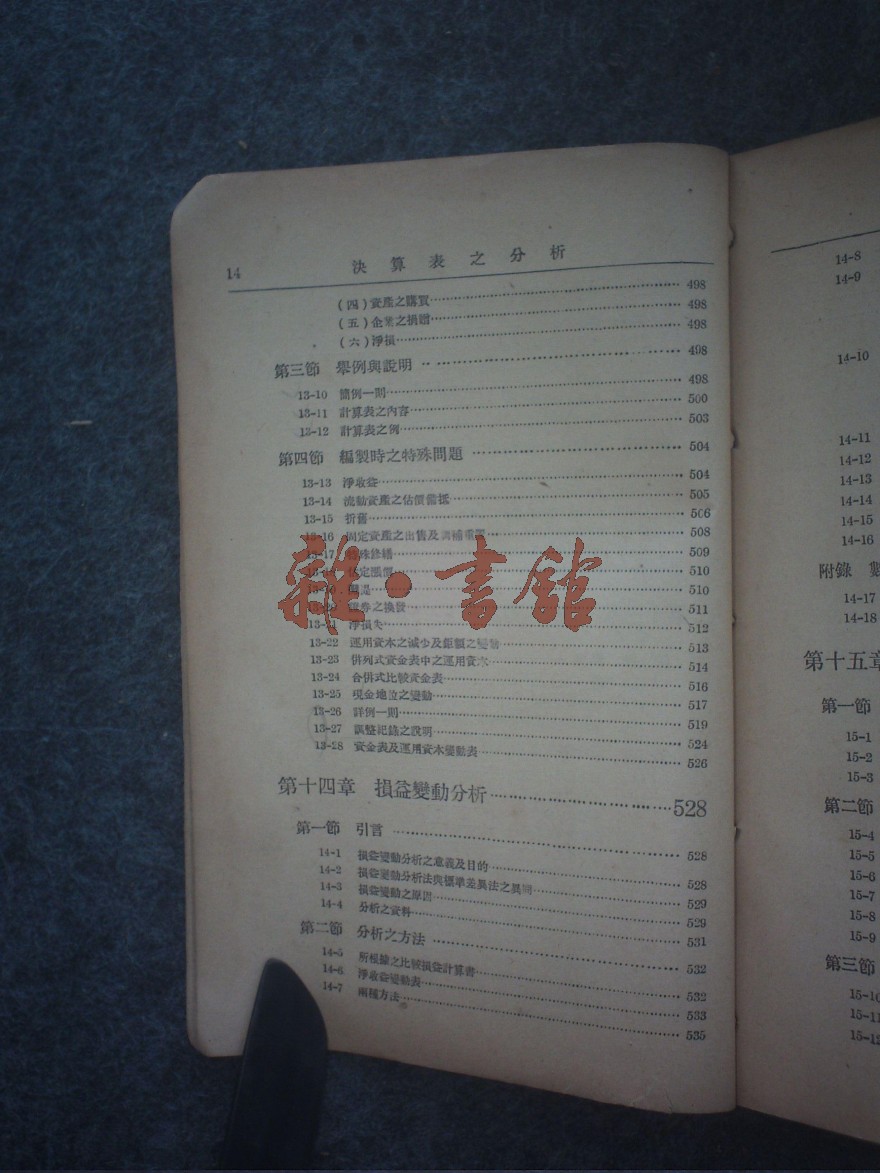 14 決算表之分析
(四)資產之購買 498
(五)企業之捐贈 498
(六)淨損 498
第三節 舉例與說明 498
13-10 簡例一則 498
13-11 計算表之內容 500
13-12 計算表之例 503
第四節 編製時之特殊問題 504
13-13 淨收益 504
13-14 流動資產之估價備抵 505
13-15 折舊 506
13-16 固定資產之出售及 508
13-17 509
510
510
之換發 511
淨損失 512
13-22 運用資本之減少及鉅額之變 513
13-23 併列式資金表中之運用資本 514
13-24 合併式比較資金表 516
13-25 現金地位之變動 517
13-26 詳例一則 519
13-27 調整紀錄之說明 524
13-28 資金表及運用資本變動表 526
第十四章 損益變動分析 528
第一節 引言 528
14-1 損益變動分析之意義及目的 528
14-2 損益變動分析法與標準差異法之異同 529
14-3 損益變動之原因 529
14-4 分析之資料 531
第二節 分析之方法 532
14-5 所根據之比較損益計算書 532
14-6 淨收益變動表 533
14-7 兩種方法 535
雜·書館
14-8
14-9
14-10
14-11
14-12
14-13
14-14
14-15
14-16
附錄
14-17
14-18
第十五章
第一節
15-1
15-2
15-3
第二節
15-4
15-5
15-6
15-7
15-8
15-9
第三節
15-10
15-11
15-12